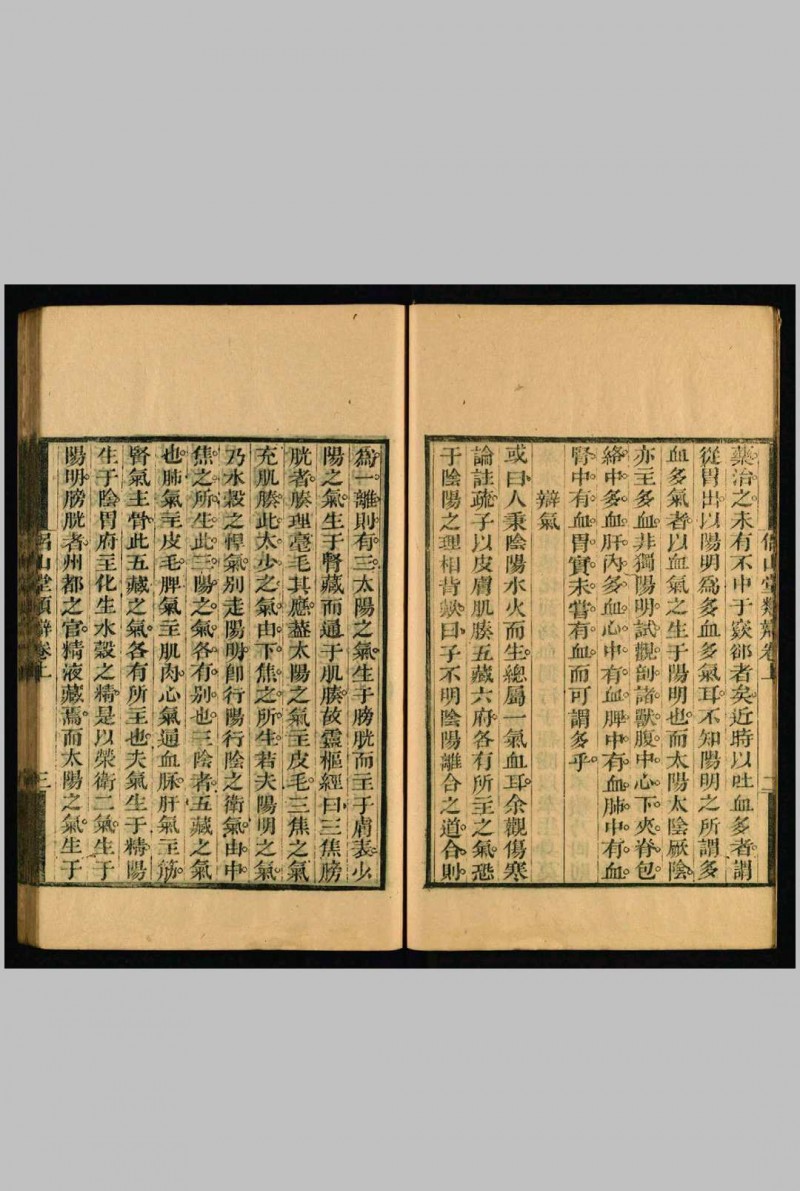 侶山堂類辯卷上
二
藥治之未有不中于窾郤者矣近時以吐血多者謂
從胃出以陽明爲多血多氣耳不知陽明之所謂多
血多氣者以血氣之生于陽明也而太陽太陰厥陰
亦主多血非獨陽明試觀剖諸獸腹中心下夾脊包
絡中多血肝內多血心中有血脾中有血肺中有血
腎中有血胃實未嘗有血而可謂多乎
辯氣
或曰人秉陰陽水火而生總屬一氣血耳余觀傷寒
論註疏子以皮膚肌腠五藏六府各有所主之氣恐
于陰陽之理相背歟曰子不明陰陽離合之道合則
爲一離則有三太陽之氣生于膀胱而主于膚表少
陽之氣生于腎藏而通于肌腠故靈樞經曰三焦膀
胱者腠理毫毛其應蓋太陽之氣主皮毛三焦之氣
充肌腠此太少之氣由下焦之所生若夫陽明之氣
乃水穀之悍氣别走陽明卽行陽行陰之衛氣由中
焦之所生此三陽之氣各有别也三陰者五藏之氣
也肺氣主皮毛脾氣主肌肉心氣通血脉肝氣主筋
腎氣主骨此五藏之氣各有所主也夫氣生于精陽
生于陰胃府主化生水穀之精是以榮衛二氣生于
陽明膀胱者州都之官精液藏焉而太陽之氣生于
侶山堂類辯卷上
三